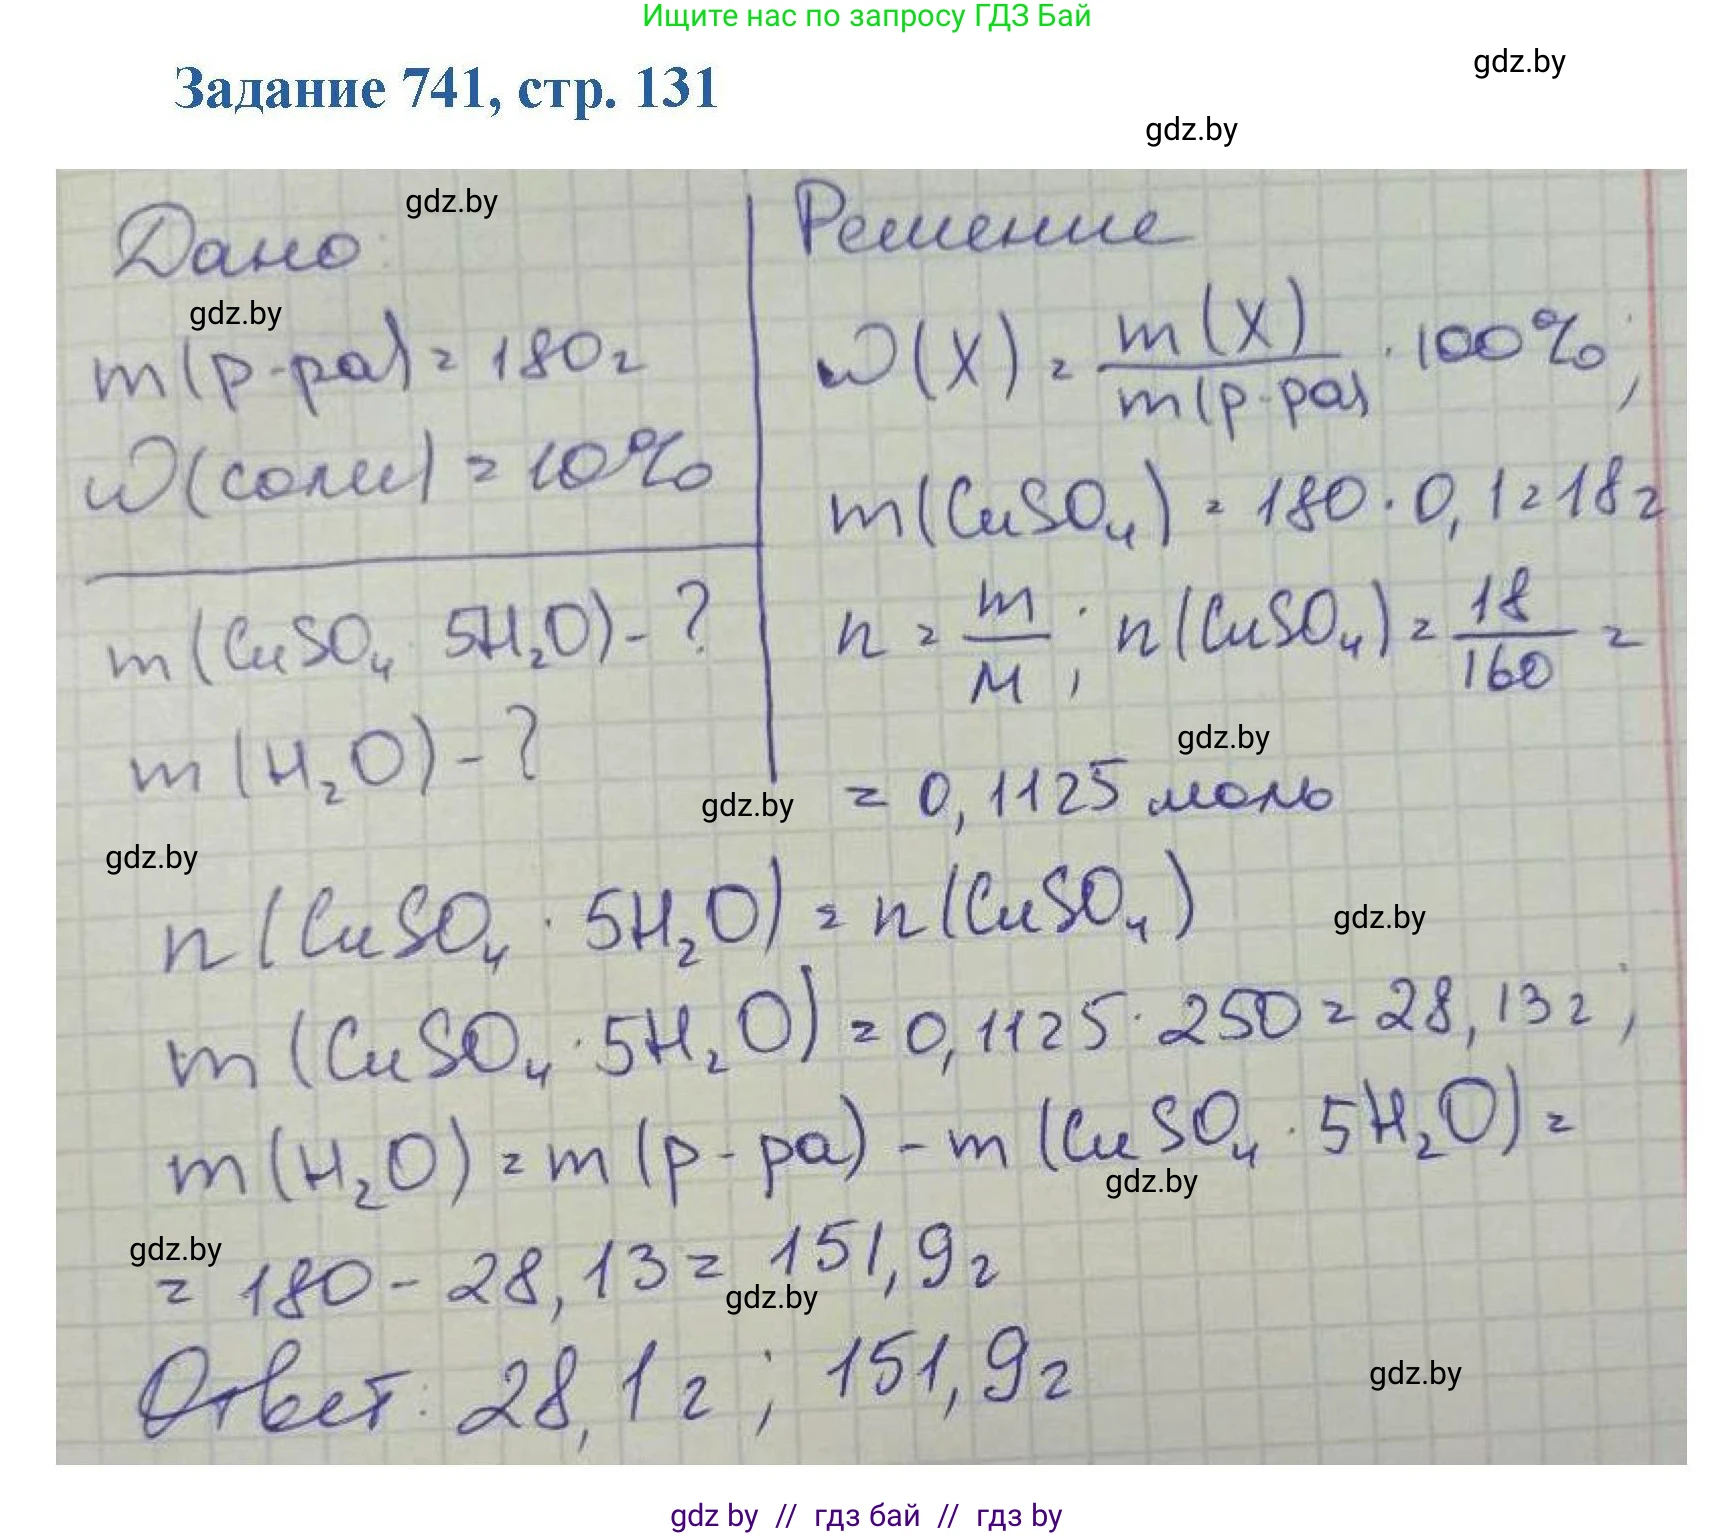 Ищите нас по запросу ГДЗ Бай
gdz.by
Задание 741, стр. 131
gdz.by
gdz.by
Дано:
gdz.by
m(р-ра) = 180г
W(соли) = 10%
m(CuSO₄ · 5H₂O) - ?
m(H₂O) - ?
Решение
W(X) = m(X) / m(р-ра) · 100%;
m(CuSO₄) = 180 · 0,1 = 18г
n = m / M; n(CuSO₄) = 18 / 160 =
gdz.by
= 0,1125 моль
gdz.by
gdz.by
n(CuSO₄ · 5H₂O) = n(CuSO₄)
gdz.by
m(CuSO₄ · 5H₂O) = 0,1125 · 250 = 28,13г;
m(H₂O) = m(р-ра) - m(CuSO₄ · 5H₂O) =
gdz.by
gdz.by
= 180 - 28,13 = 151,9г
gdz.by
Ответ: 28,1г; 151,9г
gdz.by
gdz by // гдз бай // гдз by